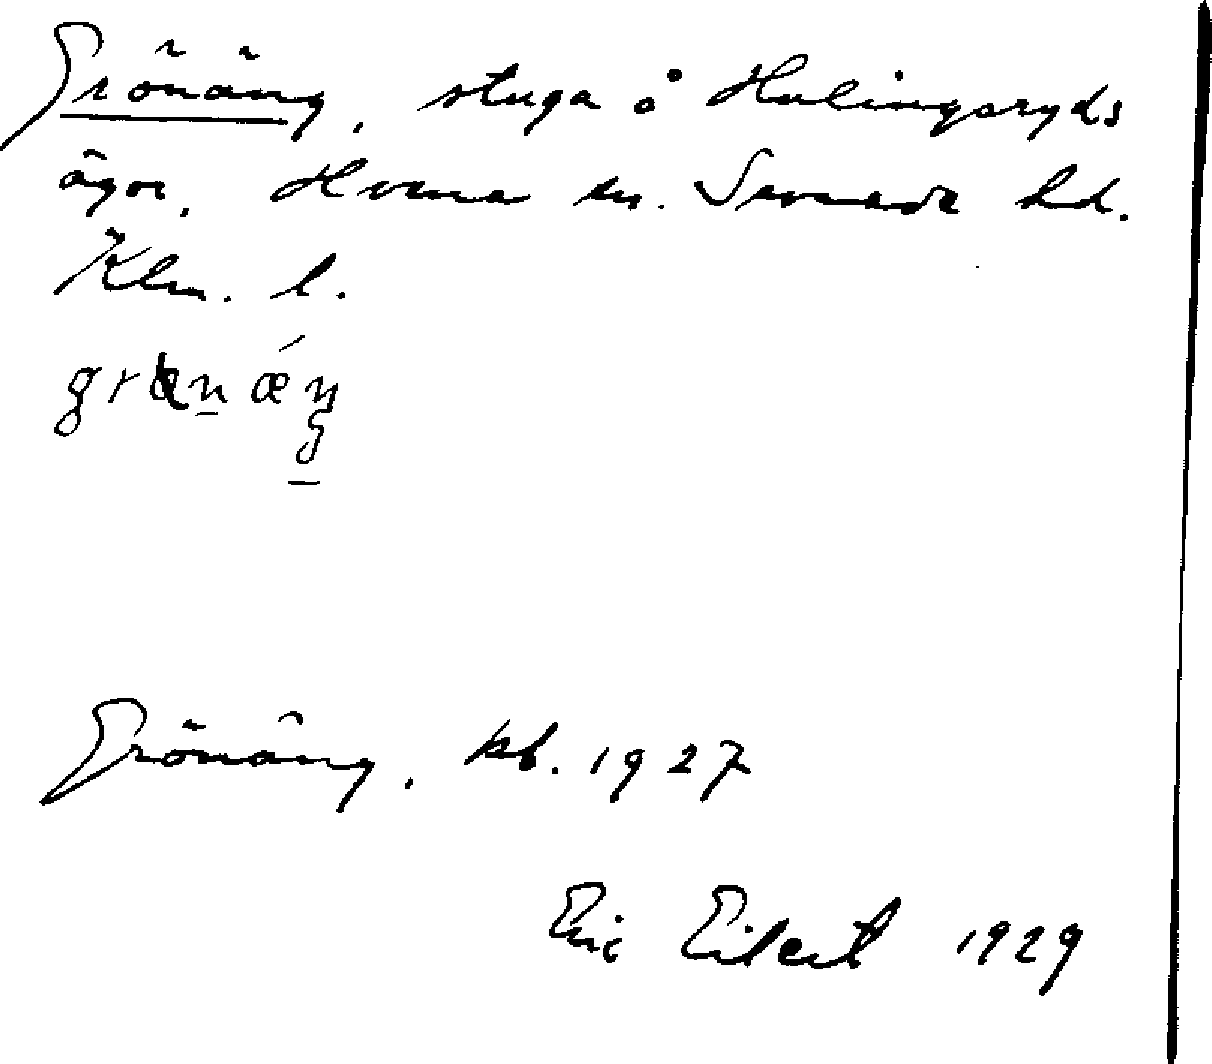 Grönäng, stuga å Hulingsryds
ägor, Hvena sn. Sevede hd.
Klm. l.
Grönäng. kb. 1927
Eric Eilert 1929